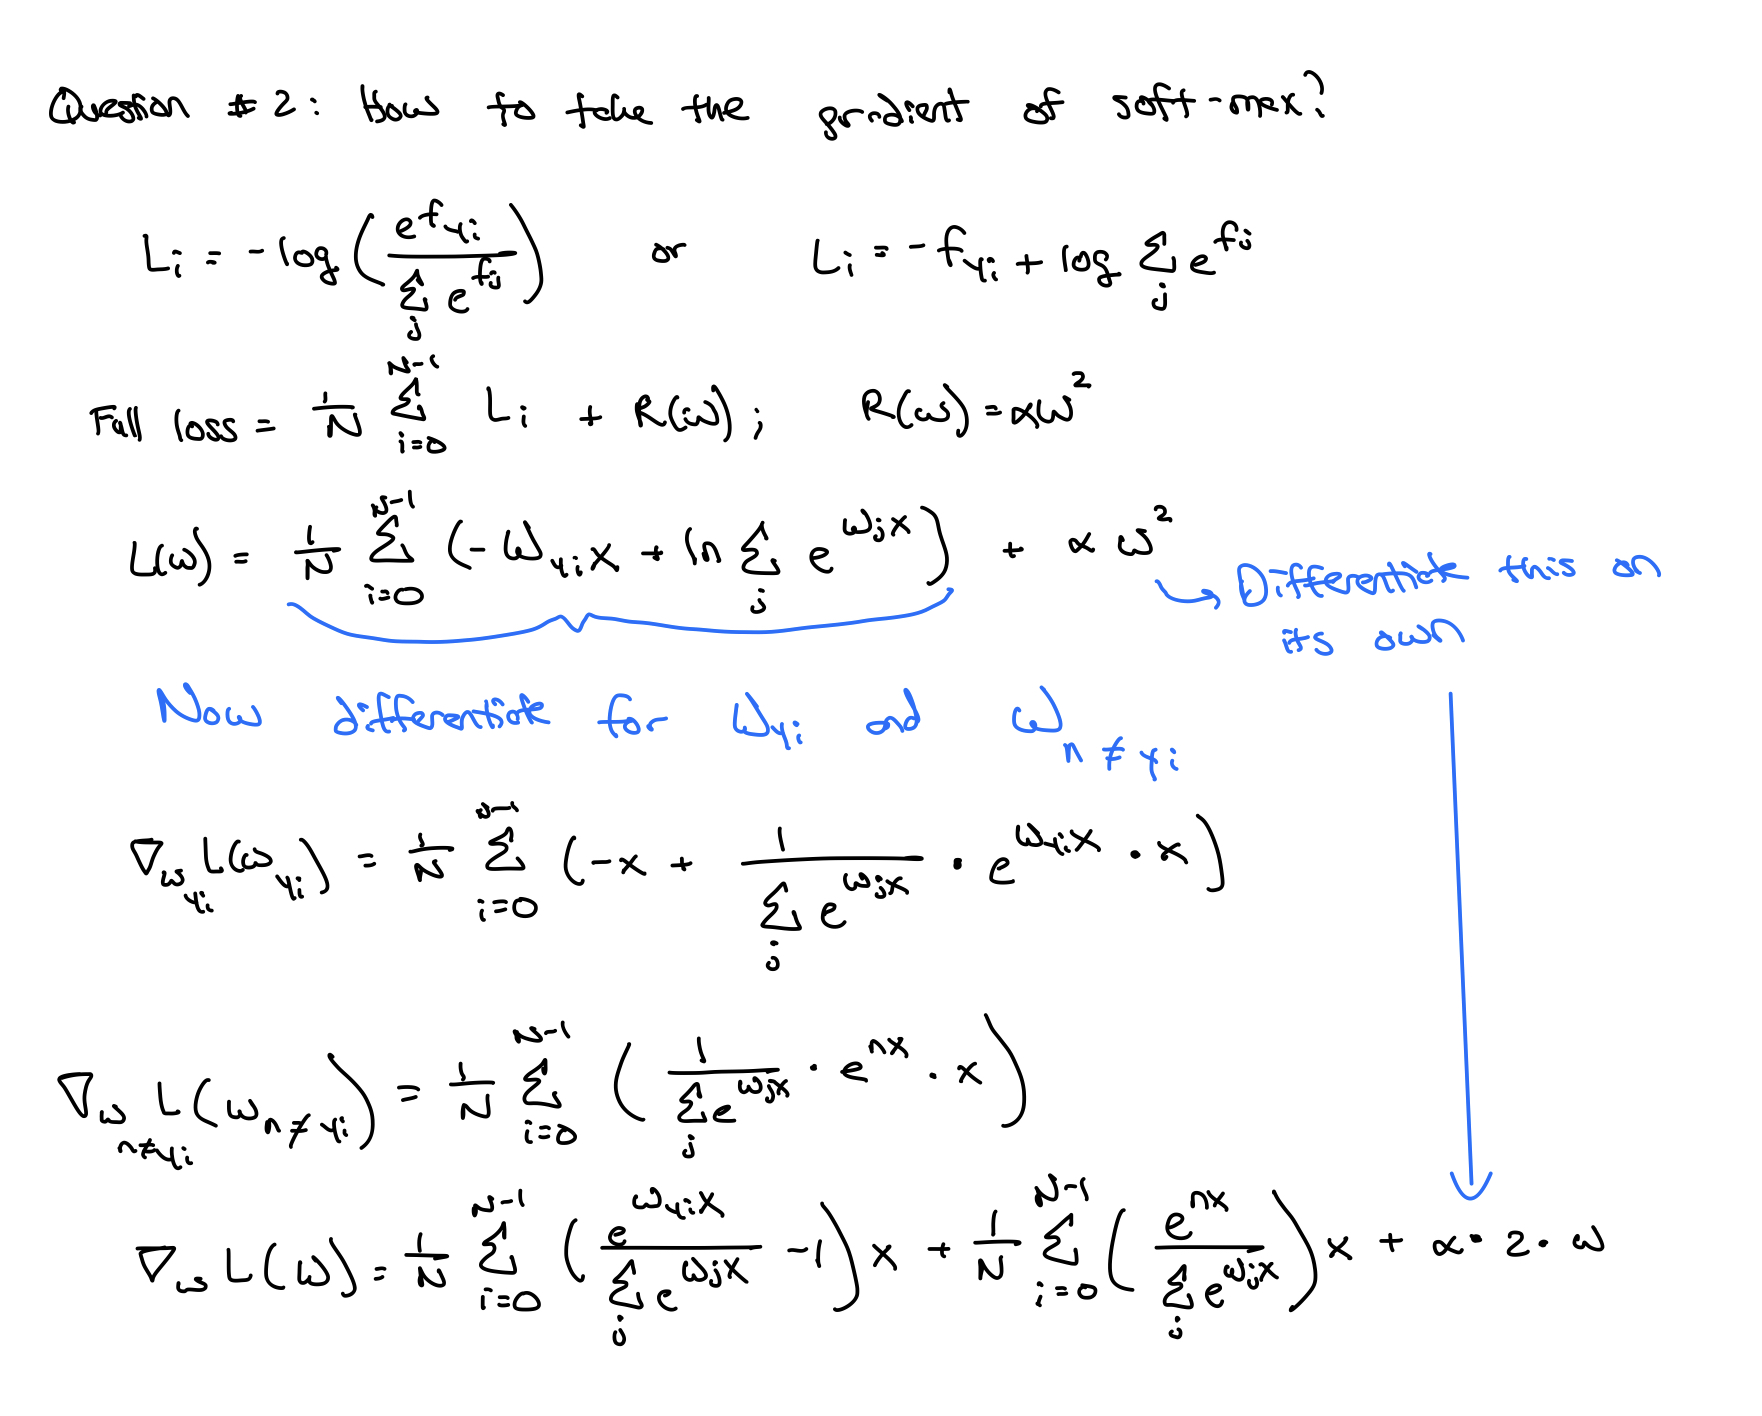 Question #2: How to take the gradient of soft-max?
L_i = -log( e^{f_{y_i}} / Σ_j e^{f_j} ) or L_i = -f_{y_i} + log Σ_j e^{f_j}
Full loss = 1/N Σ_{i=0}^{N-1} L_i + R(w); R(w) = αw^2
L(w) = 1/N Σ_{i=0}^{N-1} (-w_{y_i}x + ln Σ_j e^{w_jx}) + αw^2
Differentiate this on
its own
Now differentiate for w_{y_i} and w_{n≠y_i}
∇_{w_{y_i}} L(w_{y_i}) = 1/N Σ_{i=0}^{N-1} (-x + 1/(Σ_j e^{w_jx}) · e^{w_{y_i}x} · x)
∇_{w_{n≠y_i}} L(w_{n≠y_i}) = 1/N Σ_{i=0}^{N-1} ( 1/(Σ_j e^{w_jx}) · e^{nx} · x )
∇_w L(w) = 1/N Σ_{i=0}^{N-1} ( e^{w_{y_i}x} / Σ_j e^{w_jx} - 1 ) x + 1/N Σ_{i=0}^{N-1} ( e^{nx} / Σ_j e^{w_jx} ) x + α · 2 · w